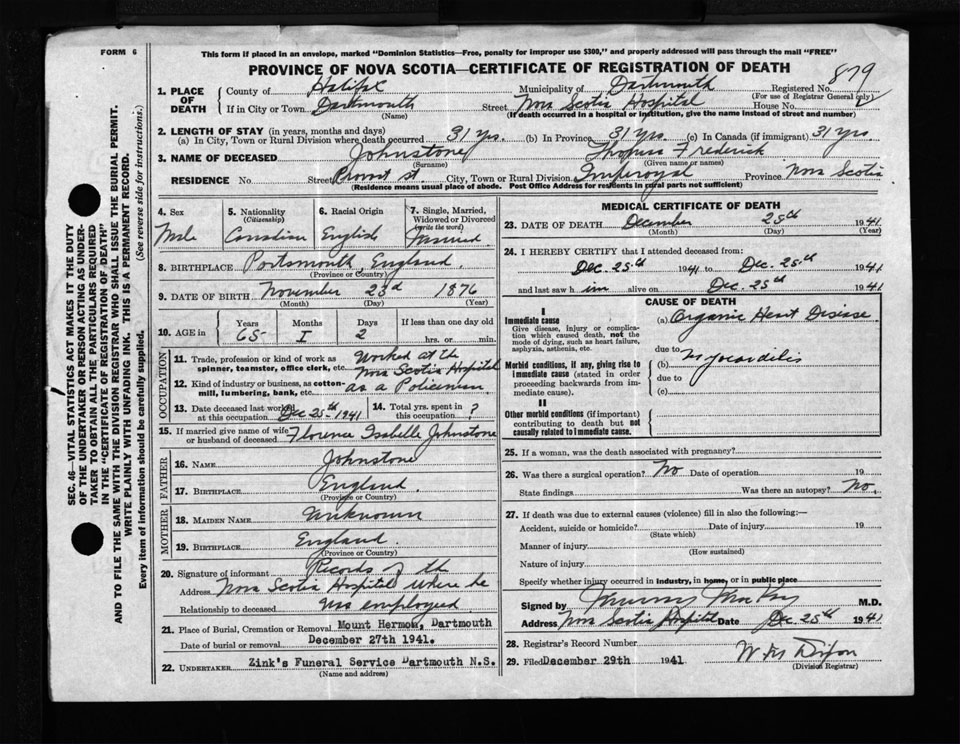 FORM 6
This form if placed in an envelope, marked "Dominion Statistics—Free, penalty for improper use $300," and properly addressed will pass through the mail "FREE"
PROVINCE OF NOVA SCOTIA—CERTIFICATE OF REGISTRATION OF DEATH
879
1. PLACE OF DEATH
County of Halifax Municipality of Dartmouth Registered No.
(For use of Registrar General only)
If in City or Town Dartmouth Street Nova Scotia Hospital House No.
(Name) (If death occurred in a hospital or institution, give the name instead of street and number)
2. LENGTH OF STAY (in years, months and days)
(a) In City, Town or Rural Division where death occurred 31 yrs. (b) In Province 31 yrs (c) In Canada (if immigrant) 31 yrs
3. NAME OF DECEASED Johnstone Thomas Frederick
(Surname) (Given name or names)
RESIDENCE No. Street St. City, Town or Rural Division Imperoyal Province Nova Scotia
(Residence means usual place of abode. Post Office Address for residents in rural parts not sufficient)
4. Sex
Male
5. Nationality
(Citizenship)
Canadian
6. Racial Origin
English
7. Single, Married, Widowed or Divorced
(write the word)
Married
8. BIRTHPLACE Portsmouth, England.
(Province or Country)
9. DATE OF BIRTH November 23d 1876
(Month) (Day) (Year)
10. AGE in
Years Months Days If less than one day old
65 1 2 hrs. or min.
OCCUPATION
11. Trade, profession or kind of work as spinner, teamster, office clerk, etc. Worked at the
Nova Scotia Hospital
12. Kind of industry or business, as cotton-mill, lumbering, bank, etc. as a Policeman
13. Date deceased last worked at this occupation Dec 25th 1941
14. Total yrs. spent in this occupation ?
15. If married give name of wife or husband of deceased Florence Isabelle Johnstone
FATHER
16. NAME Johnstone
17. BIRTHPLACE England
(Province or Country)
MOTHER
18. MAIDEN NAME Unknown
19. BIRTHPLACE England
(Province or Country)
20. Signature of informant Records of the
Address Nova Scotia Hospital where he
Relationship to deceased was employed
21. Place of Burial, Cremation or Removal Mount Hermon, Dartmouth
Date of burial or removal December 27th 1941.
22. UNDERTAKER Zink's Funeral Service Dartmouth N.S.
(Name and address)
MEDICAL CERTIFICATE OF DEATH
23. DATE OF DEATH December 25th 1941
(Month) (Day) (Year)
24. I HEREBY CERTIFY that I attended deceased from:
Dec. 25th 1941 to Dec. 25th 1941
and last saw him alive on Dec. 25th 1941
CAUSE OF DEATH
I
Immediate cause
Give disease, injury or complication which caused death, not the mode of dying, such as heart failure, asphyxia, asthenia, etc.
(a) Organic Heart Disease
due to Myocarditis
Morbid conditions, if any, giving rise to immediate cause (stated in order proceeding backwards from immediate cause).
(b)
due to
(c)
II
Other morbid conditions (if important) contributing to death but not causally related to immediate cause.
25. If a woman, was the death associated with pregnancy?
26. Was there a surgical operation? No Date of operation 19
State findings Was there an autopsy? No.
27. If death was due to external causes (violence) fill in also the following:—
Accident, suicide or homicide? Date of injury 19
(State which)
Manner of injury
(How sustained)
Nature of injury
Specify whether injury occurred in industry, in home, or in public place
Signed by Murray MacKay M.D.
Address Nova Scotia Hospital Date Dec. 25th 1941
28. Registrar's Record Number
29. Filed December 29th 1941 W M Dixon
(Division Registrar)
SEC. 46—VITAL STATISTICS ACT MAKES IT THE DUTY
OF THE UNDERTAKER OR PERSON ACTING AS UNDER-
TAKER TO OBTAIN ALL THE PARTICULARS REQUIRED
IN THE "CERTIFICATE OF REGISTRATION OF DEATH"
AND TO FILE THE SAME WITH THE DIVISION REGISTRAR WHO SHALL ISSUE THE BURIAL PERMIT.
WRITE PLAINLY WITH UNFADING INK. THIS IS A PERMANENT RECORD.
Every item of information should be carefully supplied. (See reverse side for instructions.)